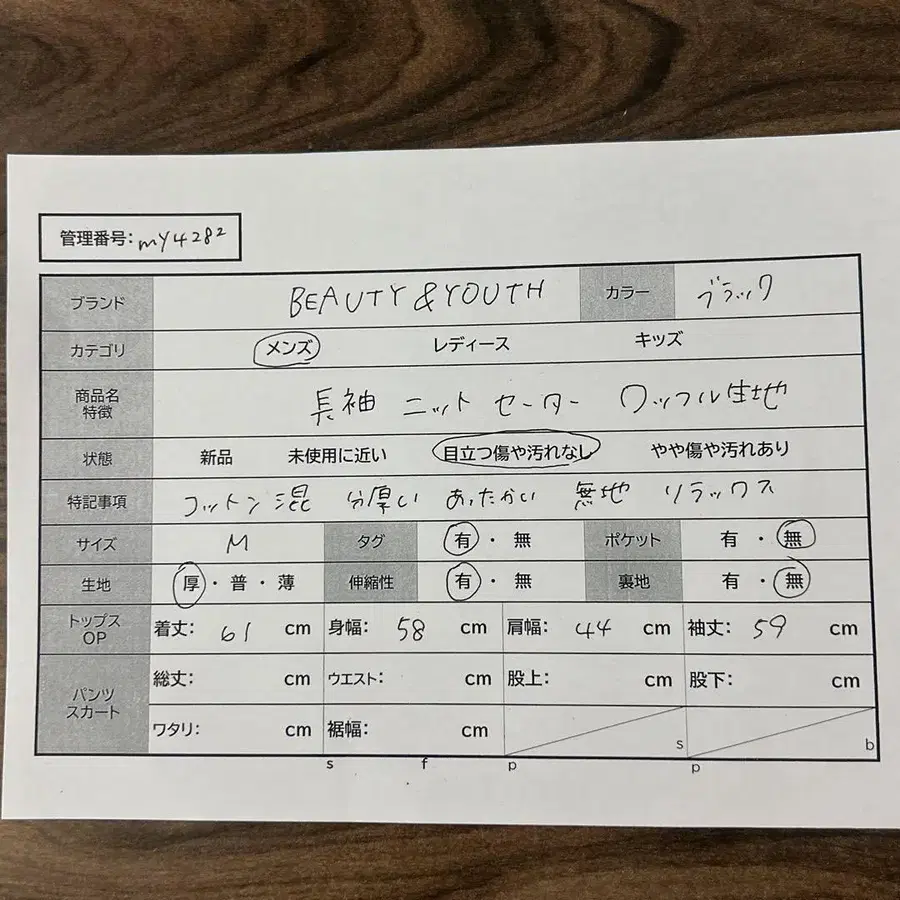 管理番号: mY4282
ブランド BEAUTY & YOUTH カラー ブラック
カテゴリ メンズ レディース キッズ
商品名 特徴 長袖 ニット セーター ワッフル生地
状態 新品 未使用に近い 目立つ傷や汚れなし やや傷や汚れあり
特記事項 コットン混 分厚い あったかい 無地 リラックス
サイズ M タグ 有 ・ 無 ポケット 有 ・ 無
生地 厚 ・ 普 ・ 薄 伸縮性 有 ・ 無 裏地 有 ・ 無
トップス OP 着丈: 61 cm 身幅: 58 cm 肩幅: 44 cm 袖丈: 59 cm
パンツ スカート 総丈: cm ウエスト: cm 股上: cm 股下: cm
ワタリ: cm 裾幅: cm s b
s f p p